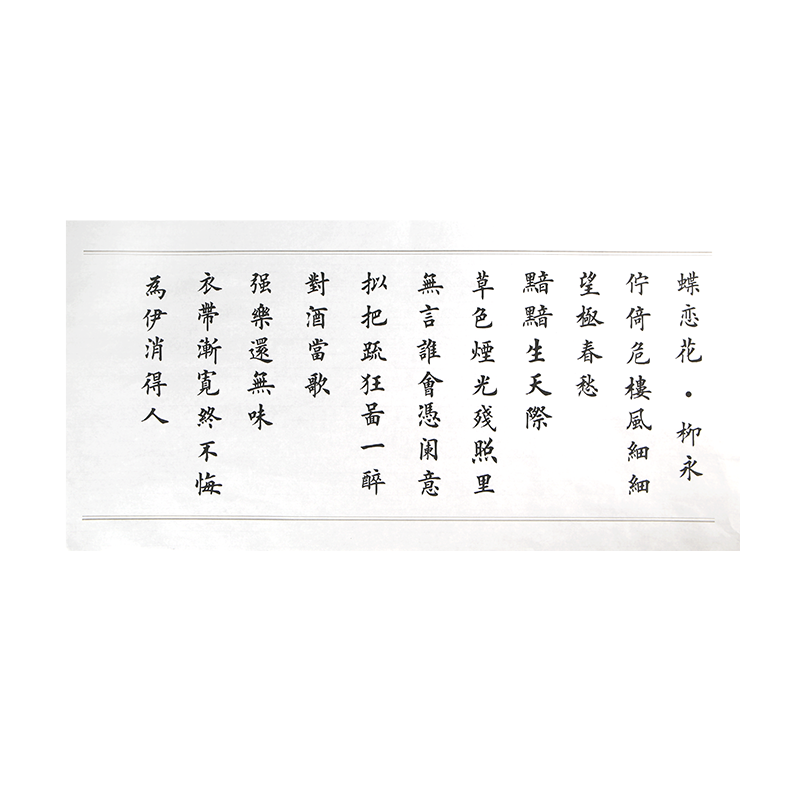 蝶恋花·柳永
佇倚危樓風細細
望極春愁
黯黯生天際
草色煙光殘照里
無言誰會憑闌意
拟把疏狂啚一醉
對酒當歌
强樂還無味
衣帶漸寬終不悔
為伊消得人